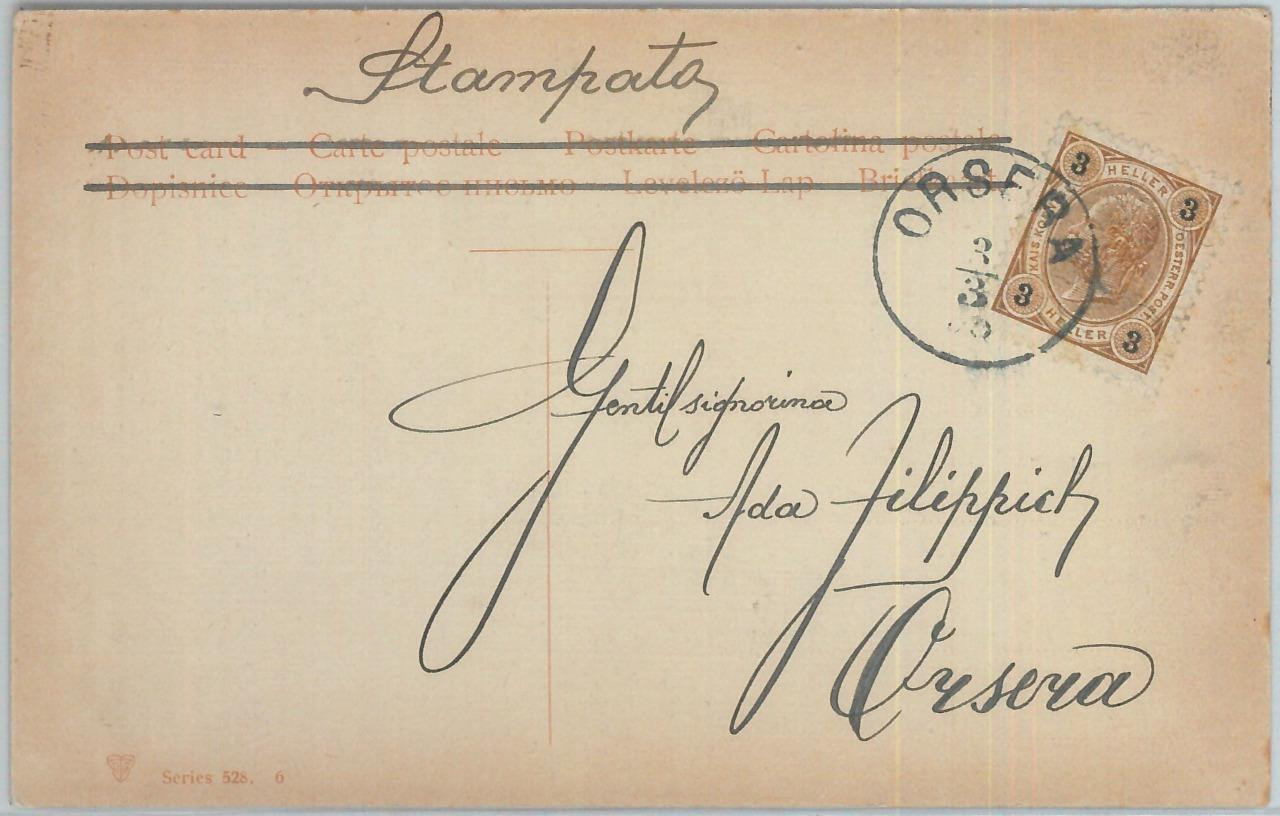 Stampata
Post card – Carte postale – Postkarte – Cartolina postale
Dopisnice – Открытое письмо – Levelező-Lap –
ORSERA
3
3
HELLER
3
OESTERR. POST.
3
HELLER
3
KAIS.
Gentil signorina
Ada Filippich
Orsera
Series 528. 6